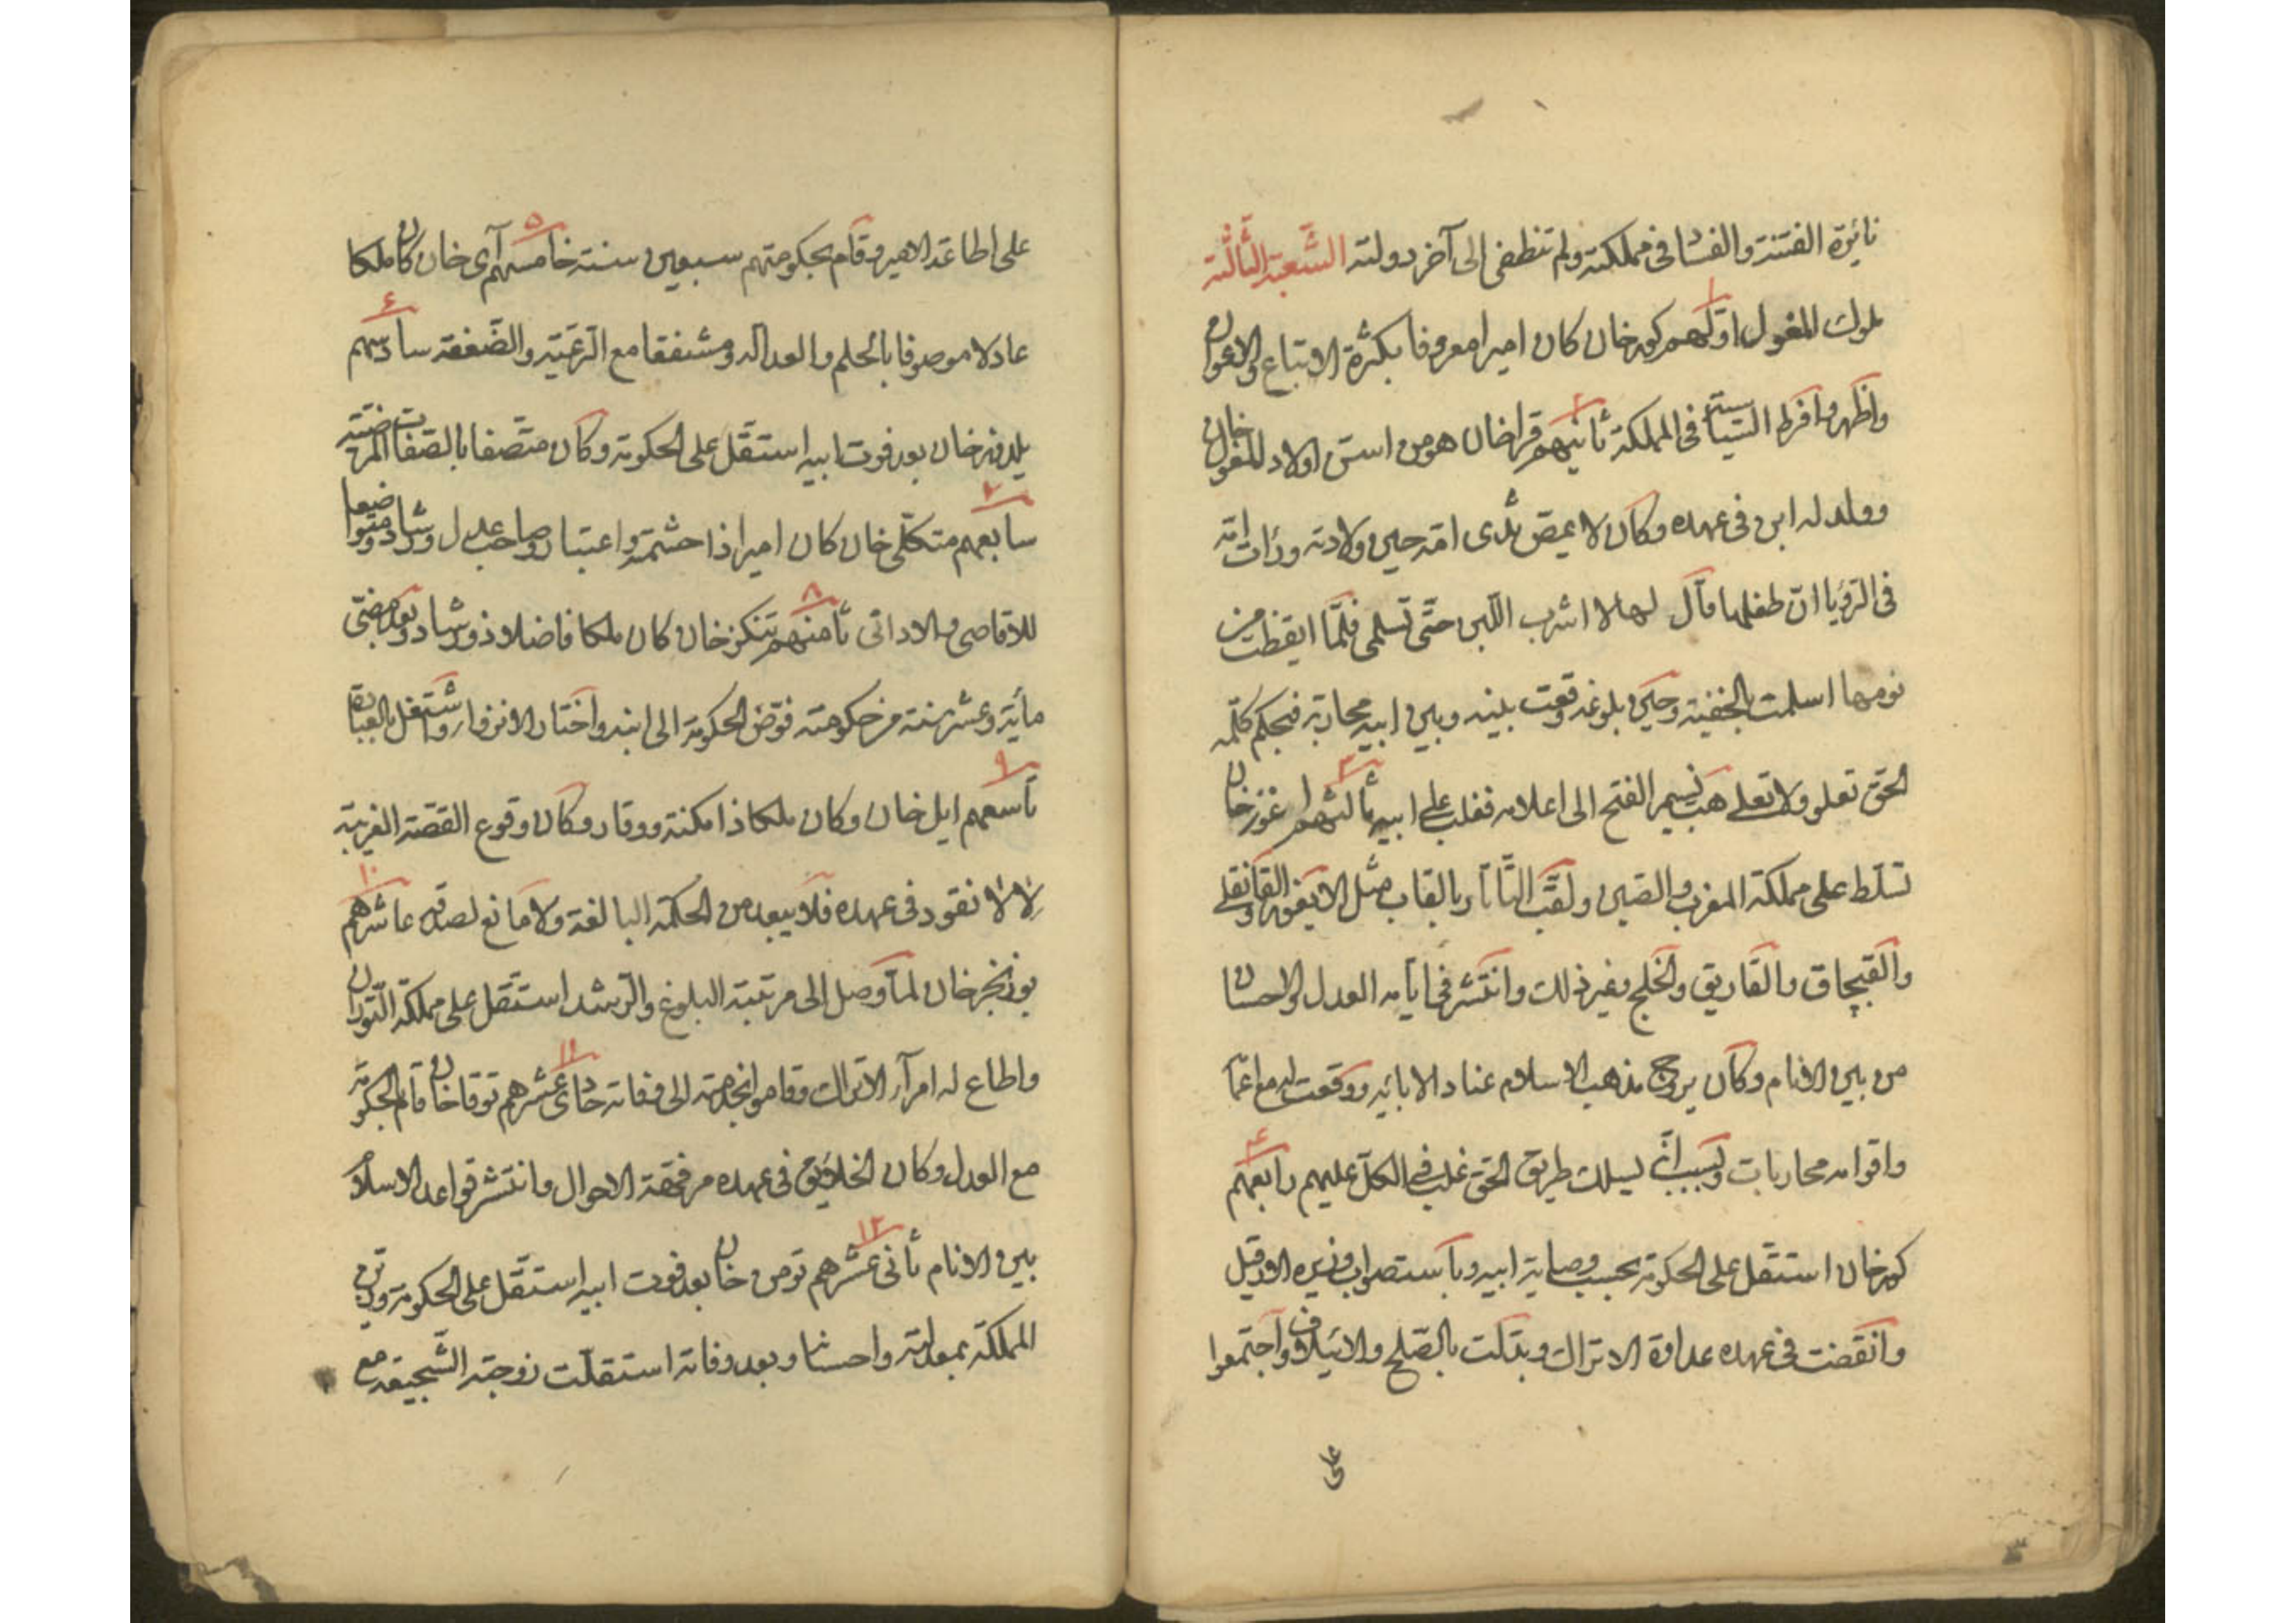 نائرة الفتنة والفساد فى مملكته ولم تنطفى الى آخر دولته الشعبة الثالثة
١
ملوك المغول اولهم كور خان كان اميرا معروفا بكثرة الاتباع والاعوان
واظهر وافرط السياسة فى المملكة ثانيهم قراخان هو من اسن اولاد المغول خان
٢
وولد له ابن فى عهده وكان لا يمص ثدى امّه حين ولادته ورات امّه
فى الرؤيا انّ طفلها قال لها لا اشرب اللبن حتّى تسلمى فلمّا ايقظت من
نومها اسلمت بالخفية وحين بلوغه وقعت بينه وبين ابيه محاربة فبحكم كلمة
الحق تعلو ولا تعلى هبّ نسيم الفتح الى اعلامه فغلب على ابيه ثالثهم اغوز خان
٣
تسلط على مملكة المغرب والصين ولقب التاتار بالقاب مثل الايغور والقانقلى
والقبچاق والقاريق والخلج وغير ذلك وانتشر فى ايامه العدل والاحسان
من بين الانام وكان يروج مذهب الاسلام عنادا لابائه ووقعت له مع اعمامه
واقوامه محاربات وبسبب انّه يسلك طريق الحق غلب فى الكل عليهم رابعهم
٤
كمر خان استقل على الحكومة بحسب وصاية ابيه وباستصواب وزيره الارقيل
وانقضت فى عهده عداوة الاتراك وبدّلت بالصّلح والائتلاف واجتمعوا
على
على اطاعة الامير وقام بحكومتهم سبعين سنة خامسهم آى خان كان ملكا
٥
عادلا موصوفا بالحلم والعدالة ومشفقا مع الرعيّة والضّعفة سادسهم
٦
يلدوز خان بعد فوت ابيه استقل على الحكومة وكان متّصفا بالصّفات المرضيّة
سابعهم متكلى خان كان اميرا ذا حشمة واعتبار وصاحب عدل ورشاد ومتواضعا
٧
للاقاصى والادانى ثامنهم تنكز خان كان ملكا فاضلا ذو رشاد وبعد مضىّ
٨
مأية وعشر سنة من حكومته فوّض الحكومة الى ابنه واختار الانزوا واشتغل بالعبادة
تاسعهم ايل خان وكان ملكا ذا مكنة ووقار وكان وقوع القصّة الغريبة
٩
لالانقود فى عهده فلا يبعد من الحكمة البالغة ولا مانع لصدقه عاشرهم
١٠
بوزنجر خان لمّا وصل الى مرتبة البلوغ والرّشد استقل على مملكة التوران
واطاع له امرآء الاتراك وقاموا بخدمته الى وفاته حادى عشرهم توقا خان قام بالحكومة
١١
مع العدل وكان الخلايق فى عهده مرفّهة الاحوال وانتشر قواعد الاسلام
بين الانام ثانى عشرهم تومن خان بعد فوت ابيه استقل على الحكومة وزين
١٢
المملكة بمعدلته واحسانه وبعد وفاته استقلت زوجته الشجيقة مع